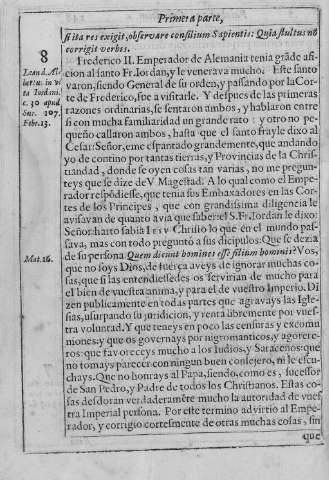 Primera parte,
si ita res exigit, observare consilium Sapientis: Quia stultus nõ
corrigit verbis.
8
Leand. Al-
Iordani.
c. 30 apud
Sur. 107.
Febr. 13.
Frederico II. Emperador de Alemania tenia grãde afi-
cion al santo Fr. Iordan, y le venerava mucho. Este santo
varon, siendo General de su orden, y passando por la Cor-
te de Frederico, fue a visitarle. Y despues de las primeras
razones ordinarias, se sentaron ambos, y hablaron entre
si con mucha familiaridad un grande rato: y otro no pe-
queño callaron ambos, hasta que el santo frayle dixo al
Cesar: Señor, eme espantado grandemente, que andando
yo de contino por tantas tierras, y Provincias de la Chris-
tiandad, donde se oyen cosas tan varias, no me pregun-
teys que se dize de V. Magestad. A lo qual como el Empe-
rador respõdiesse, que tenia sus Embaxadores en las Cor-
tes de los Principes, que con grandissima diligencia le
avisavan de quanto avia que saber: el S. Fr. Iordan le dixo:
Señor: harto sabia Iesv Christo lo que en el mundo pas-
sava, mas con todo preguntó a sus dicipulos: Que se dezia
Mat. 16.
de su persona. Quem dicunt homines esse filium hominis? Vos,
que no soys Dios, de fuerça aveys de ignorar muchas co-
sas, que si las entendiessedes os servirian de mucho para
el bien de vuestra anima, y para el de vuestro Imperio. Di
zen publicamente en todas partes que agravays las Igle-
sias, usurpando su juridicion, y renta libremente por vues-
tra voluntad. Y que teneys en poco las censuras y excomu
niones; y que os governays por nigromanticos, y agorere-
ros: que favoreceys mucho a los Iudios, y Saracenos: que
no tomays parecer con ningun buen consejero, ni le escu-
chays. Que no honrays al Papa, siendo, como es, sucessor
de San Pedro, y Padre de todos los Christianos. Estas co-
sas desdoran verdaderamẽte mucho la autoridad de vues
tra Imperial persona. Por este termino advirtio al Empe-
rador, y corrigio cortesmente de otras muchas cosas, sin
que